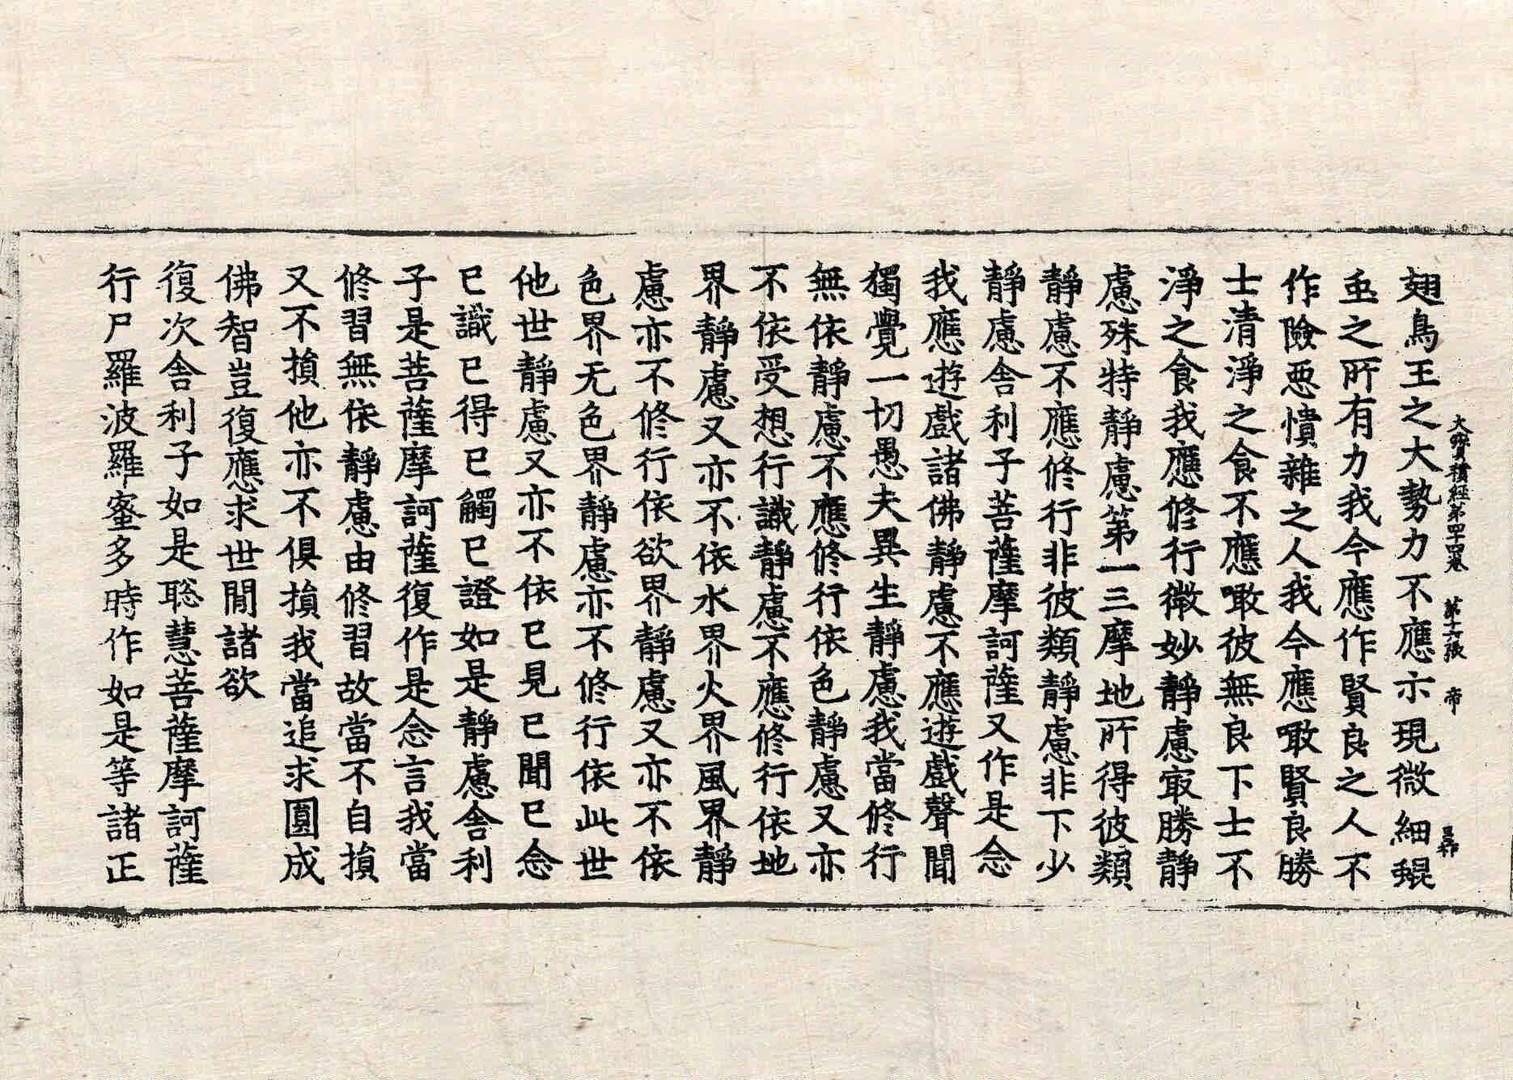 大寶積經第四十四卷 第十六張 帝
翅鳥王之大勢力不應示現微細蜫
䖝之所有力我今應作賢良之人不
作險惡憒雜之人我今應噉賢良勝
士清淨之食不應噉彼無良下士不
淨之食我應修行微妙靜慮㝡勝靜
慮殊特靜慮第一三摩地所得彼類
靜慮不應修行非彼類靜慮非下少
靜慮舍利子菩薩摩訶薩又作是念
我應遊戲諸佛靜慮不應遊戲聲聞
獨覺一切愚夫異生靜慮我當修行
無依靜慮不應修行依色靜慮又亦
不依受想行識靜慮不應修行依地
界靜慮又亦不依水界火界風界靜
慮亦不修行依欲界靜慮又亦不依
色界无色界靜慮亦不修行依此世
他世靜慮又亦不依已見已聞已念
已識已得已觸已證如是靜慮舍利
子是菩薩摩訶薩復作是念言我當
修習無依靜慮由修習故當不自損
又不損他亦不俱損我當追求圓成
佛智豈復應求世間諸欲
復次舍利子如是聡慧菩薩摩訶薩
行尸羅波羅蜜多時作如是等諸正